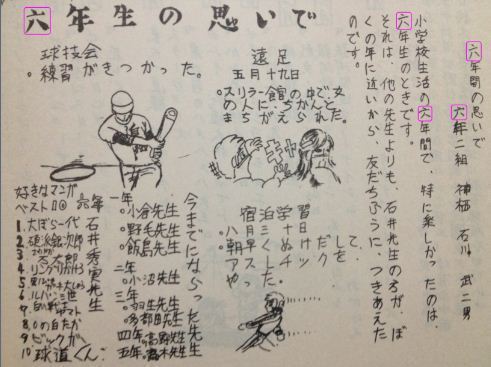 六年生の思いで
六年間の思いで
六年二組 神栖 石川 武二男
小学校生活の六年間で、特に楽しかったのは、
六年生のときです。
それは、他の先生よりも、石井先生の方が、ぼ
くの年に近いから、友だちふうに、つきあえた
のです。
遠足
五月十九日
スリラー館の中で、女
の人に、ちかんと
まちがえられた。
キャ
球技会
練習がきつかった。
宿泊学習
八月三十日
朝早くぬけだして、
アスレチックを
やった。
今までにならった先生
一年
小倉先生
野毛先生
飯島先生
二年
小沼先生
三年
羽生先生
多都田先生
四年 高野先生
五年 高木先生
六年
石井秀宣先生
好きなマンガ
ベスト10
1.大ぼら一代
6.ルパン三世
10球道くん